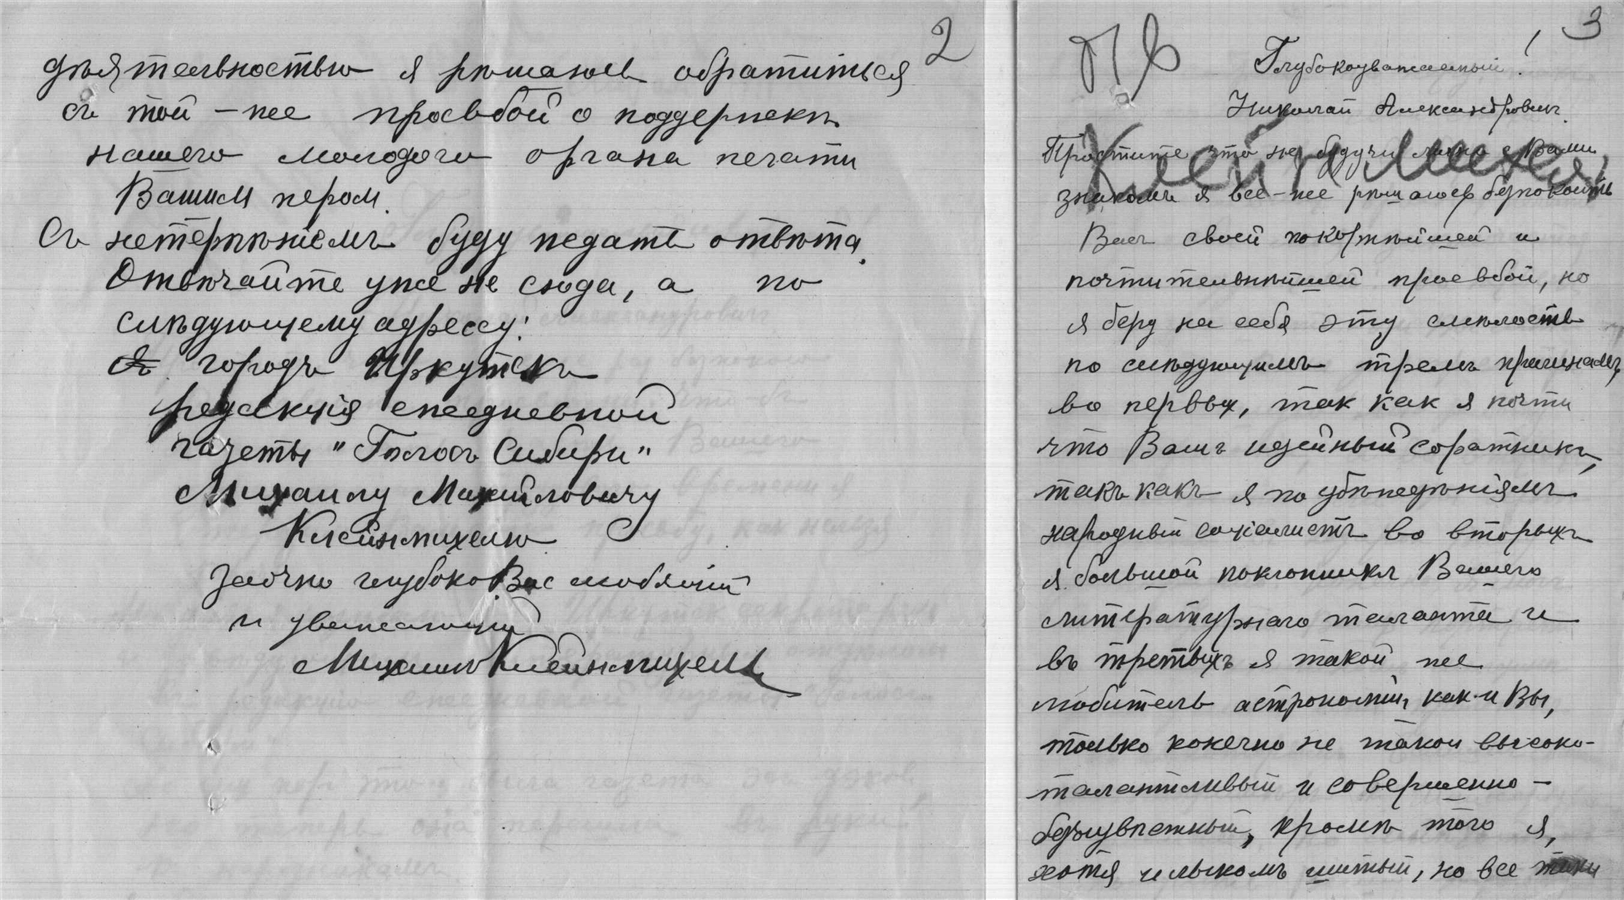 2
дѣятельностью я рѣшаюсь обратиться
съ той-же просьбой о поддержкѣ
нашего молодого органа печати
Вашим пером.
Съ нетерпѣніемъ буду ждать отвѣта.
Отвѣчайте уже не сюда, а по
слѣдующему адрессу:
городъ Иркутскъ
редакція ежедневной
газеты "Голосъ Сибири"
Михаилу Михайловичу
Клейнмихелю
Заочно глубоко Вас любящій
и уважающій
Михаилъ Клейнмихель
3
Глубокоуважаемый!
Николай Александрович.
Клейнмихель
Простите что не будучи лично с Вами
знакомъ я все-же рѣшаюсь безпокоить
Васъ своей покорнѣйшей и
почтительнѣйшей просьбой, но
я беру на себя эту смѣлость
по слѣдующимъ тремъ причинамъ,
во первых, так как я почти
что Вашъ идейный соратникъ,
такъ какъ я по убѣжденіямъ
народный соціалистъ во вторыхъ
я большой поклонникъ Вашего
литературнаго таланта и
въ третьихъ я такой же
любитель астрономіи, как и Вы,
только конечно не такой высоко-
талантливый и совершенно-
безызвѣстный, кромѣ того я,
хотя и лыкомъ шитый, но все таки